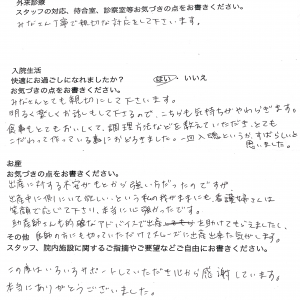 外来診療
スタッフの対応、待合室、診察室等お気づきの点をお書きください。
みなさん丁寧で親切な対応をして下さいます。
入院生活
快適にお過ごしになれましたか？ はい・いいえ
お気づきの点をお書きください。
みなさんとても親切にして下さいます。
明るく楽しくお話しもして下さるので、こちらも気持ちがやわらぎます。
食事もとてもおいしくて、調理方法などを教えていただき、とても
こだわって作っている事におどろきました。一回入魂というか、すばらしいと
思いました。
お産
お気づきの点をお書きください。
出産に対する不安がもともと強い方だったのですが、
出産中に側にいて欲しい、という私のわがままにも、看護婦さんは
笑顔で応じて下さい、本当に心強かったです。
助産師さんも的確なアドバイスで出産を助けてもらえましたし、
その他 医師の方にも切っていただいてスムーズに出産出来た気がします。
スタッフ、院内施設に関するご指摘やご要望などご自由にお書きください。
この度はいろいろサポートしていただき心から感謝しています。
本当にありがとうございました。